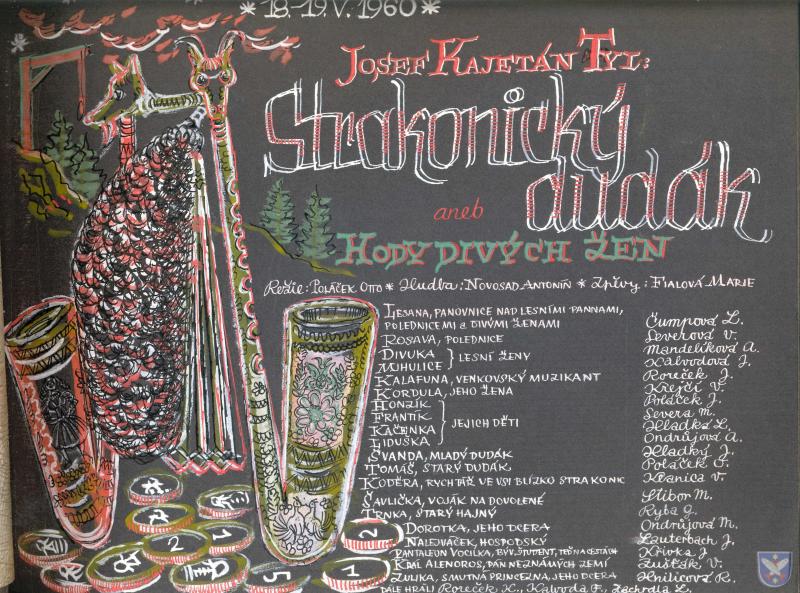 *18.-19.V.1960*
JOSEF KAJETÁN TYL:
Strakonický
dudák
aneb
HODY DIVÝCH ŽEN
Režie: POLÁČEK OTTO * Hudba: NOVOSAD ANTONÍN * Zpěvy: FIALOVÁ MARIE
LESANA, PANOVNICE NAD LESNÍMI PANNAMI,
POLEDNICEMI a DIVÝMI ŽENAMI Čumpová L.
ROSAVA, POLEDNICE Severová V.
DIVUKA Mandelíková A.
MIHULICE } LESNÍ ŽENY Kalvodová J.
KALAFUNA, VENKOVSKÝ MUZIKANT Roreček J.
KORDULA, JEHO ŽENA Krejčí V.
HONZÍK Poláček J.
FRANTÍK Severa M.
KAČENKA } JEJICH DĚTI Hladká L.
LIDUŠKA Ondrůjová A.
ŠVANDA, MLADÝ DUDÁK Hladký J.
TOMÁŠ, STARÝ DUDÁK Poláček O.
KODĚRA, RYCHTÁŘ VE VSI BLÍZKO STRAKONIC V.
ŠAVLIČKA, VOJÁK NA DOVOLENÉ Slibor M.
TRNKA, STARÝ HAJNÝ Ryba
DOROTKA, JEHO DCERA Ondrůjová M.
NALEJVÁČEK, HOSPODSKÝ Lauterbach J.
PANTALEON VOCILKA, BÝV. ŠTUDENT, TEĎ NA CESTÁCH Křivka J.
KRÁL ALENOROS, PÁN NEZNÁMÝCH ZEMÍ V.
ZULIKA, SMUTNÁ PRINCEZNA, JEHO DCERA Hnilicová R.
DÁLE HRÁLI Roreček K., Kalvoda F., Zachrdla L.
2
2
1
5
1